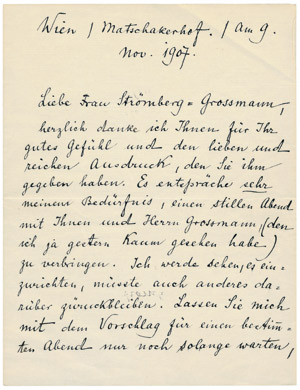 Wien / Matschakerhof. / Am 9.
Nov. 1907.
Liebe Frau Strömberg=Grossmann,
herzlich danke ich Ihnen für Ihr
gutes Gefühl und den lieben und
reichen Ausdruck, den Sie ihm
gegeben haben. Es entspräche sehr
meinem Bedürfnis, einen stillen Abend
mit Ihnen und Herrn Grossmann (den
ich ja gestern kaum gesehen habe)
zu verbringen. Ich werde sehen, es ein=
zurichten, müsste auch anderes da=
rüber zurückbleiben. Lassen Sie mich
mit dem Vorschlag für einen bestimm=
ten Abend nur noch solange warten,